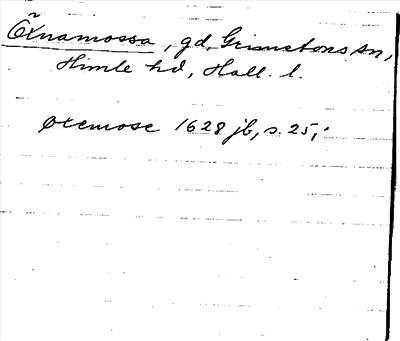 Öxnamossa, gd, Grimetons sn,
Himle hd, Hall. l.
Oxemose 1628 jb, s. 25,